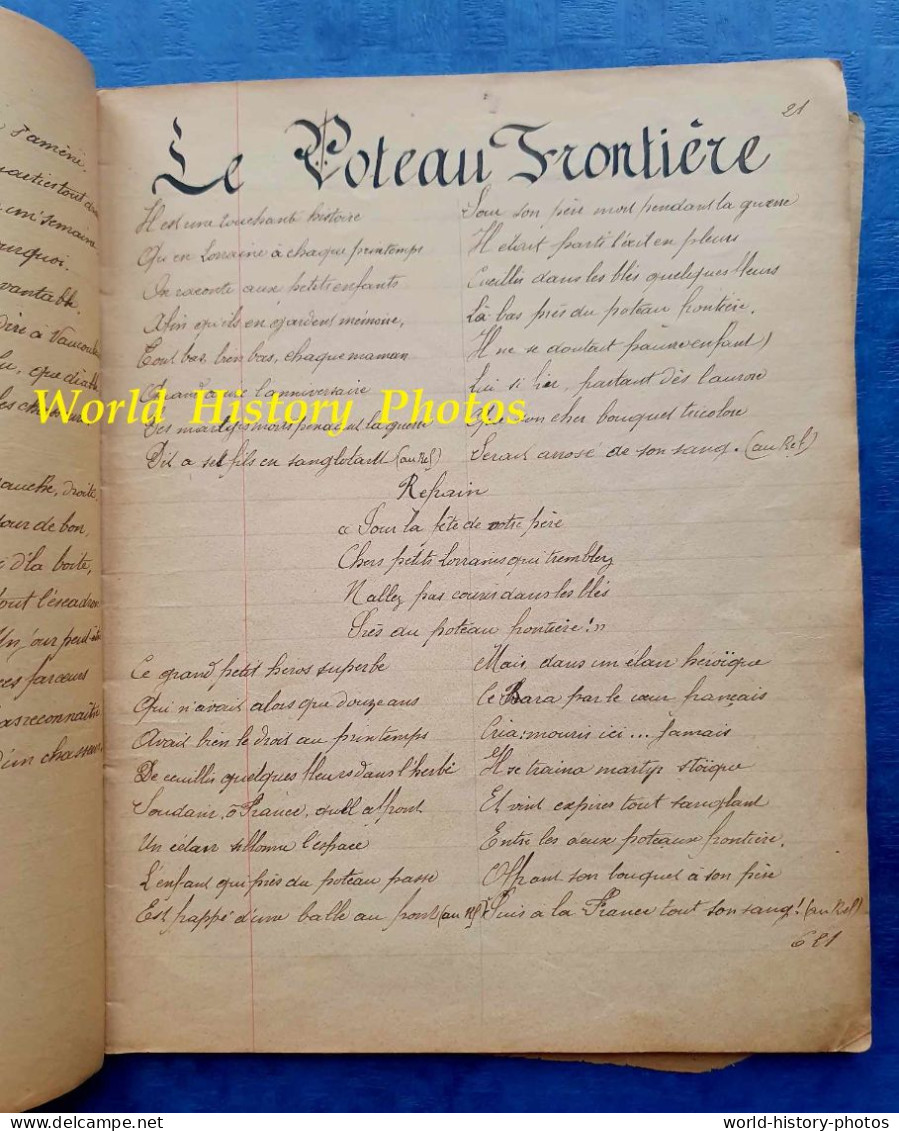 21
Le Poteau Frontière
Il est une touchante histoire
Qu'en Lorraine à chaque printemps
On raconte aux petits enfants
Afin qu'ils en gardent mémoire,
Tout bas, bien bas, chaque maman
Quand l'anniversaire
Des martyrs morts pendant la guerre
Dit a ses fils en sanglotant (au Ref)
Pour son père mort pendant la guerre
Il était parti l'œil en pleurs
Cueillir dans les blés quelques fleurs
Là bas près du poteau frontière.
Il ne se doutait pauvre enfant)
Lui si fier, partant dès l'aurore
Que son cher bouquet tricolore
Serait arrosé de son sang. (au Ref)
Refrain
« Pour la fête de votre père
Chers petits lorrains qui tremblez
N'allez pas courir dans les blés
Près du poteau frontière! »
Ce grand petit heros superbe
Qui n'avait alors que douze ans
Avait bien le droit au printemps
De cueillir quelques fleurs dans l'herbe
Soudain, ô France,
Un éclair sillonne l'espace
L'enfant qui près du poteau passe
Est frappé d'une balle au front (au Rf)
Mais dans un élan héroïque
Ce Bara par le cœur français
Cria: mourir ici... Jamais
Il se traina martyr stoïque
Et vint expirer tout sanglant
Entre les deux poteaux frontière.
Offrant son bouquet à son père
Puis a la France tout son sang! (au Ref)
621
t'amène.
un' semaine
pourquoi.
dire à
gauche, droite,
pour de bon,
d'la boite,
tout l'escadron
Un jour peut-
farceurs
reconnaître
d'un chasseur.
World History Photos
delcampe.net
world-history-photos